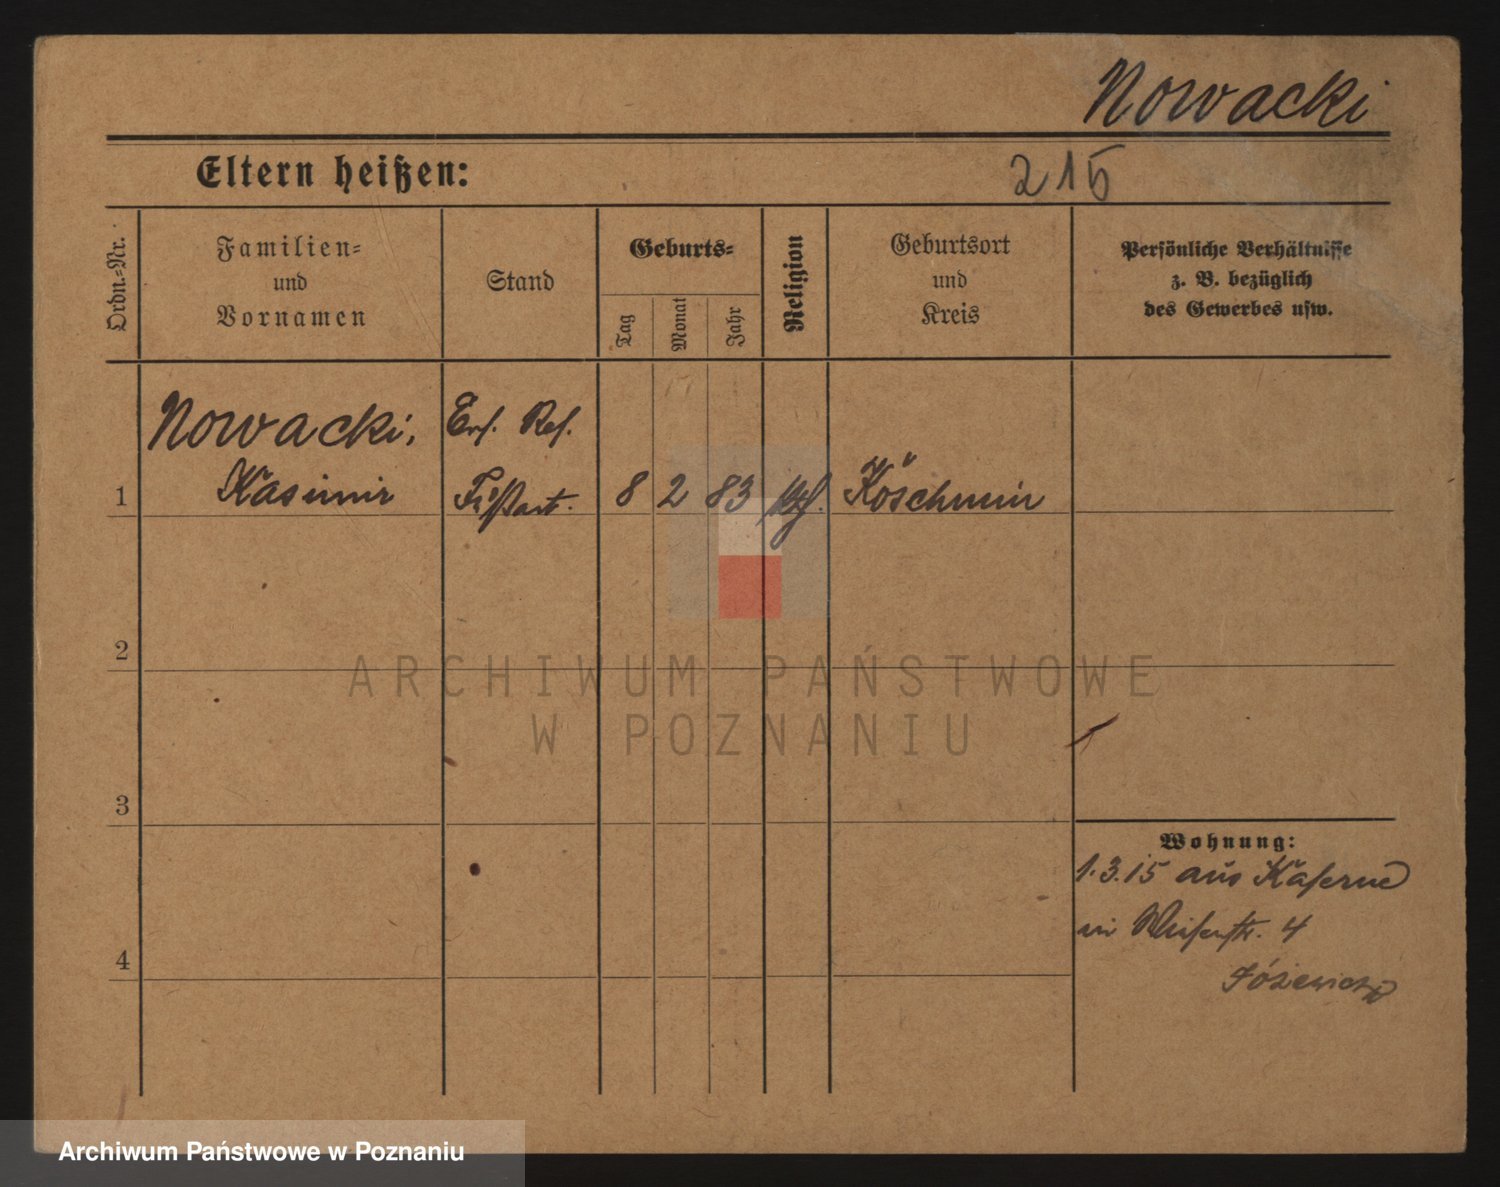 Nowacki
Eltern heißen:
215
Ordn.-Nr.
Familien-
und
Vornamen
Stand
Geburts-
Tag
Monat
Jahr
Religion
Geburtsort
und
Kreis
Persönliche Verhältnisse
z. B. bezüglich
des Gewerbes usw.
Nowacki, Ers. Res.
1 Kasimir Fußart. 8 2 83 kth. Koschmin
2
ARCHIWUM PAŃSTWOWE
W POZNANIU
3
Wohnung:
1.3.15 aus Kaserne
in 4
4
Archiwum Państwowe w Poznaniu